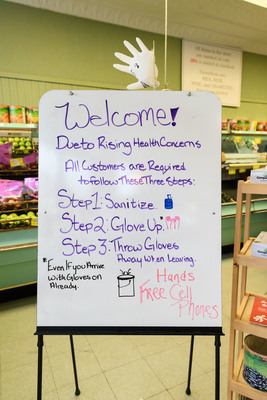 Welcome!
Due to Rising Health Concerns
All Customers are Required
to follow These Three Steps:
Step 1: Sanitize
Step 2: Glove Up*
Step 3: Throw Gloves
Away When Leaving.
*Even If you Arrive
with Gloves on
Already.
Hands
Free Cell
Phones